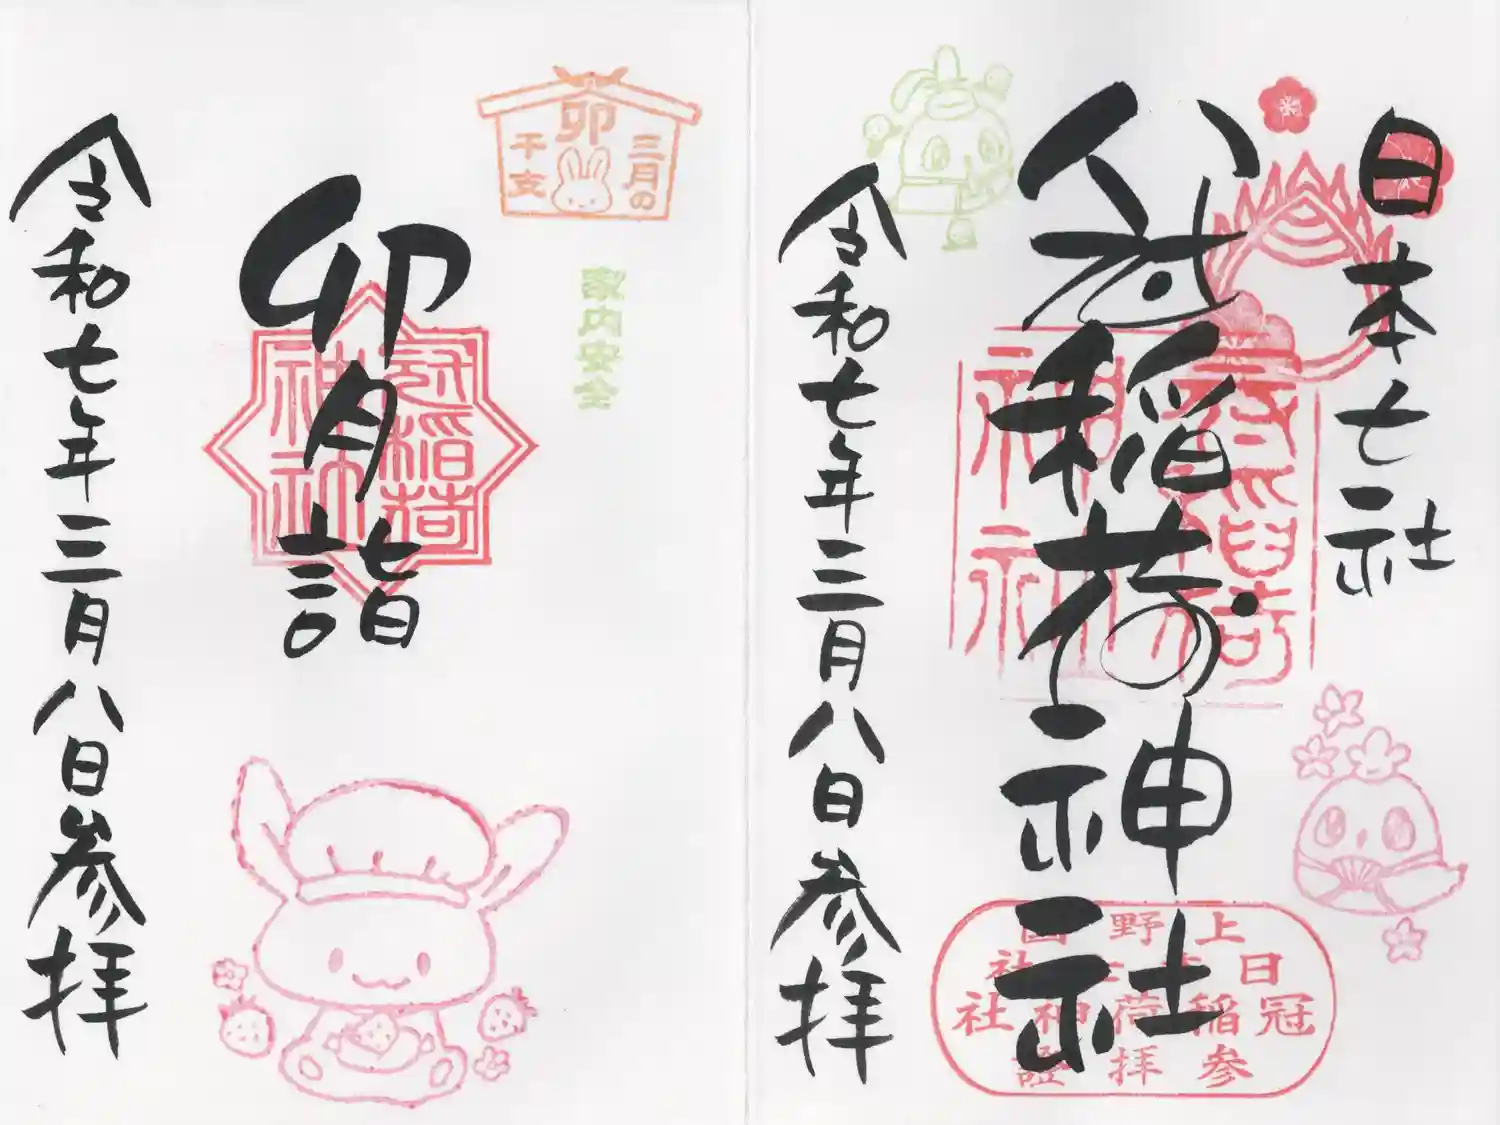 日本七社
冠稲荷神社
令和七年三月八日参拝
上野国
日本七社
冠稲荷神社
参拝證
三月の
卯
干支
家内安全
卯月詣
冠稲荷
神社
令和七年三月八日参拝